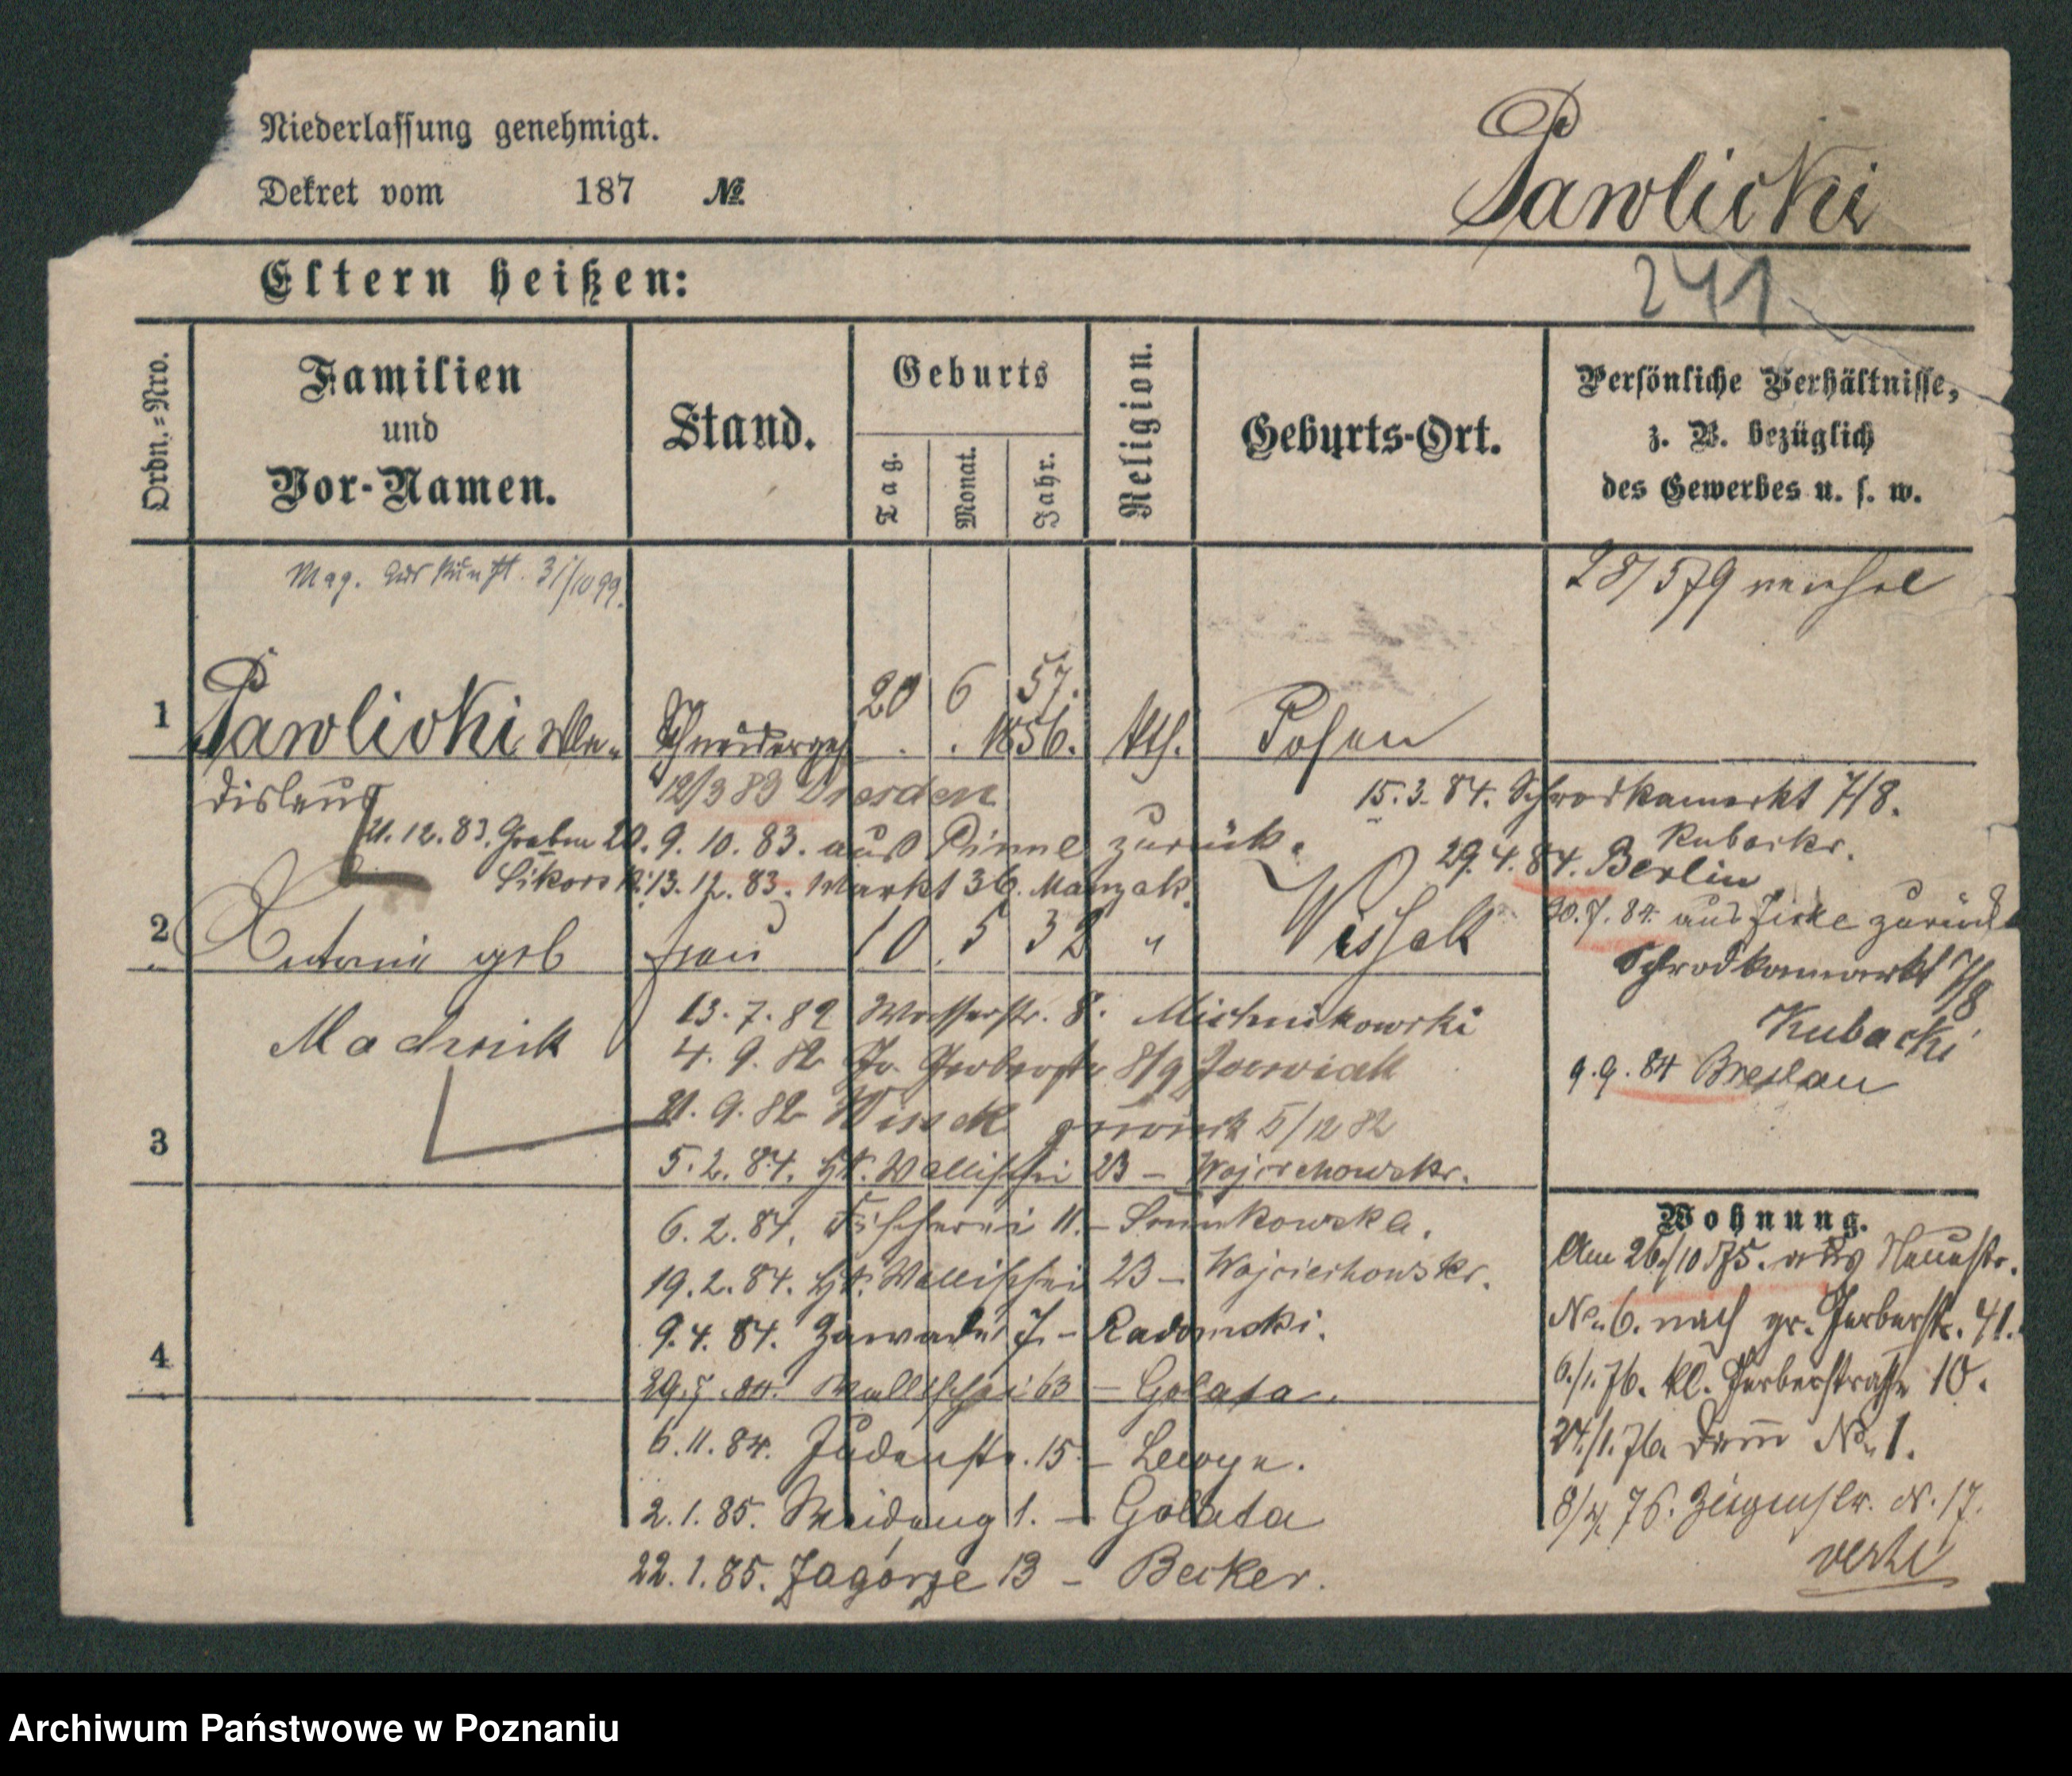 Niederlassung genehmigt.
Dekret vom 187 №
Pawlicki
241
Eltern heißen:
Ordn.=Nro.
Familien
und
Vor-Namen.
Stand.
Geburts
Tag.
Monat.
Jahr.
Religion.
Geburts-Ort.
Persönliche Verhältnisse,
z. B. bezüglich
des Gewerbes u. s. w.
Mag. Auskunft. 31/10 99.
28/5 79
20 6 57.
1 Pawlicki Wla- Schneiderges . . 1856. kth. Posen
dislaus
12/3 83 Dresden
15. 3. 84. Schrodkamarkt 7/8.
Kubacki.
21. 12. 83. Graben 20. 9. 10. 83. aus Pinne zurück.
29. 4. 84. Berlin
Sikorski. 13. 12. 83. Markt 36.
30. 7. 84. aus zurück
2 Antonie geb frau 10. 5 32 " Wissek
Schrodkamarkt 7/8
Kubacki
13. 7. 82 Wasserstr. 8. Michnikowski
4. 9. 82 Gr. Gerberstr 8/9
9. 9. 84 Breslau
21. 9. 82 Wissek zurück 5/12 82
3
5. 2. 84. Wallischei 23 - Wojciechowski.
6. 2. 84. Fischerei 11. -
19. 2. 84. Wallischei 23 - Wojciechowski.
9. 4. 84. Zawade 7. - Radomski.
4
Wallischei 63 - Golata.
6. 11. 84. Judenstr. 15 -
2. 1. 85. 1. - Golata
22. 1. 85. Zagorze 13 - Becker.
Wohnung.
Am 26/10 75. aus Neuestr.
No. 6. nach gr. Gerberstr. 41.
6./1. 76. kl. Gerberstraße 10.
24./1. 76. Damm No. 1.
8/4. 76. Ziegenstr. N. 17.
verte
Archiwum Państwowe w Poznaniu